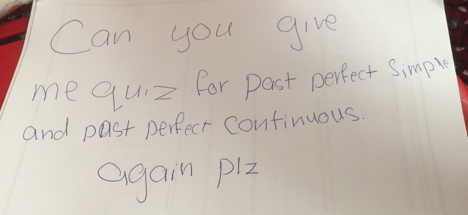 Can you give
me quiz for past perfect simple
and past perfect continuous.
again plz